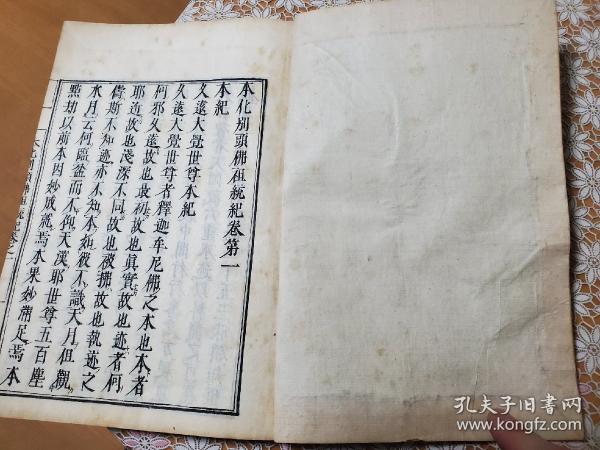 本化別頭佛祖統紀卷第一
本紀
久遠大覺世尊本紀
久遠大覺世尊者釋迦牟尼佛之本也本者
何邪久遠故也最初故也眞實故也迹者何
耶近故也淺深不同故也被拂故也執迹之
儔斯不知迹亦不知本如猴不識天月但觀
水月云何臨盆而不抑天漢耶世尊五百塵
點劫以前本因妙成就焉本果妙滿足焉本
孔夫子旧书网
www.kongfz.com